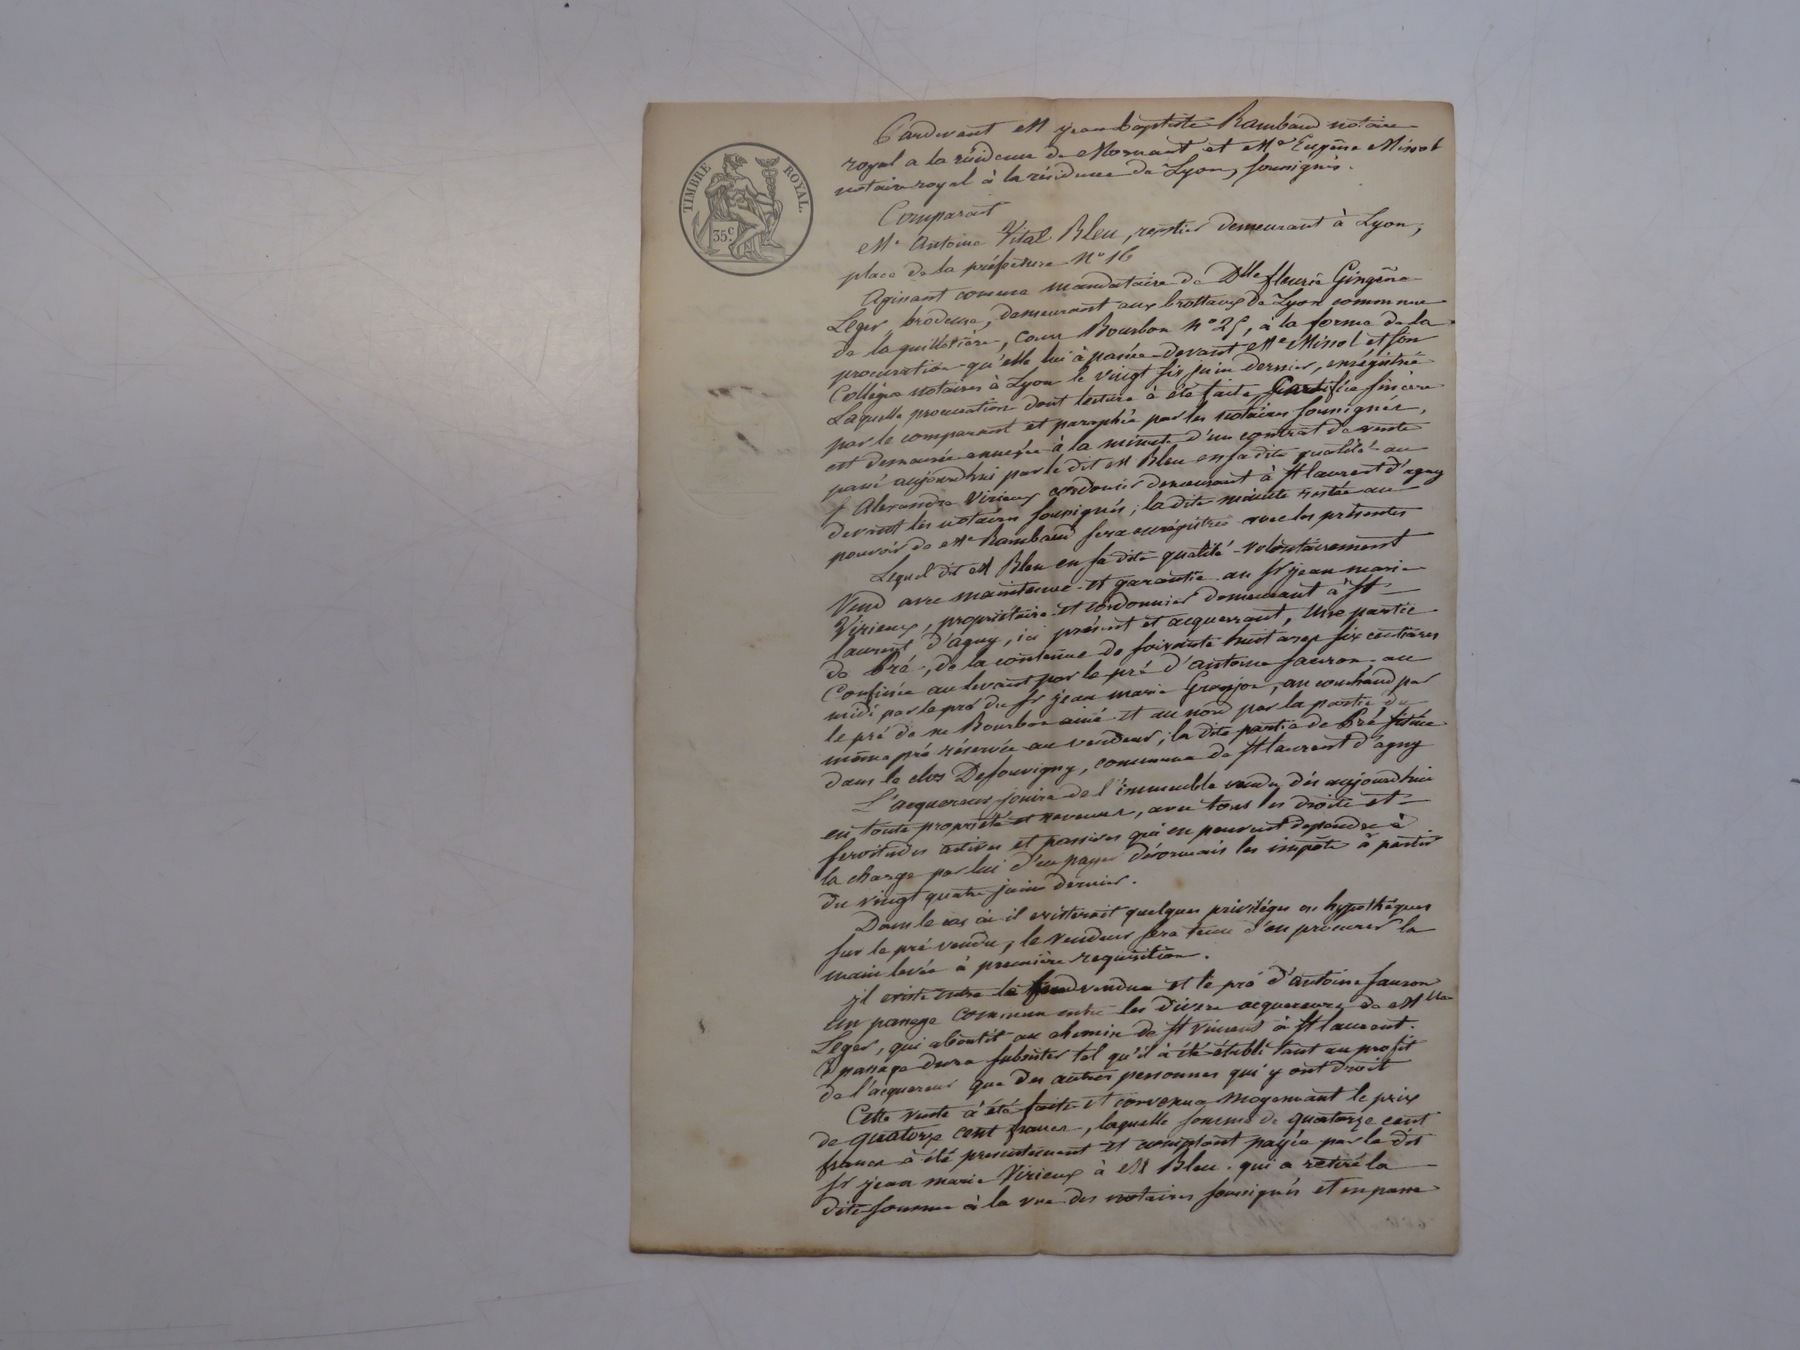 TIMBRE ROYAL.
35c.
Pardevant M jean baptiste Rambaud notaire
royal a la résidence de Mornant et Me Eugène Missol
notaire royal à la résidence de Lyon, soussignés.
Comparait
Me Antoine Vital Bleu, rentier demeurant à Lyon,
place de la préfecture No 16
Agissant comme mandataire de Dlle fleurie Gingène
Leger brodeuse, demeurant aux brottaux de Lyon commune
de la guillotière, cours Bourbon No 25, à la forme de la
procuration qu'elle lui à passée devant Me Missol et son
Collègue notaires à Lyon le vingt six juin dernier, enrégistrée
Laquelle procuration dont lecture à été faite, Certifiée sincère
par le comparant et paraphée par les notaires soussignés,
est demeurée annexée à la minute d'un contrat de vente
passé aujourdhui par le dit M Bleu en sa dite qualité au
Sr Alexandre Virieux cordonnier demeurant à St laurent d'agny
devant les notaires soussignés; la dite minute restée au
pouvoir de Me Rambaud sera enrégistrée avec les présentes
Lequel dit M Bleu en sa dite qualité volontairement
Vend avec maintenue et garantie au Sr jean marie
Virieux, propriétaire et cordonnier demeurant à St
laurent d'agny, ici présent et acquerrant, Une partie
de Pré, de la contenue de soixante huit ares six centiares
Confinée au levant par le pré d'antoine fauron au
midi par le pré du Sr jean marie Granjon, au couchand par
le pré de m Bourbon ainé et au nord par la partie du
même pré réservée au vendeur; la dite partie de Pré située
dans le clos Desouvigny, commune de St laurent d'agny
L'acquereur jouira de l'immeuble vendu, dès aujourdhui
en toute propriété et revenus, avec tous les droits et
servitudes actives et passives qui en peuvent dépendre à
la charge par lui d'en payer désormais les impôts à partir
du vingt quatre juin dernier.
Dans le cas où il existerait quelques priviléges ou hypothêques
sur le pré vendu, le vendeur sera tenu d'en procurer la
main levée à première requisition.
il existe entre le fond vendu et le pré d'antoine fauron
un passage commun entre les divers acquereurs de Mlle
Leger, qui aboutit au chemin de St vincent à St laurent.
Ce passage devra subsister tel qu'il à été établi tant au profit
de l'acquereur que des autres personnes qui y ont droit
Cette vente à été faite et convenue moyennant le prix
de quatorze cent francs, laquelle somme de quatorze cent
francs à été presentement et comptant payée par le dit
Sr jean marie Virieux à M Bleu qui a retiré la
dite somme à la vue des notaires soussignés et en passe